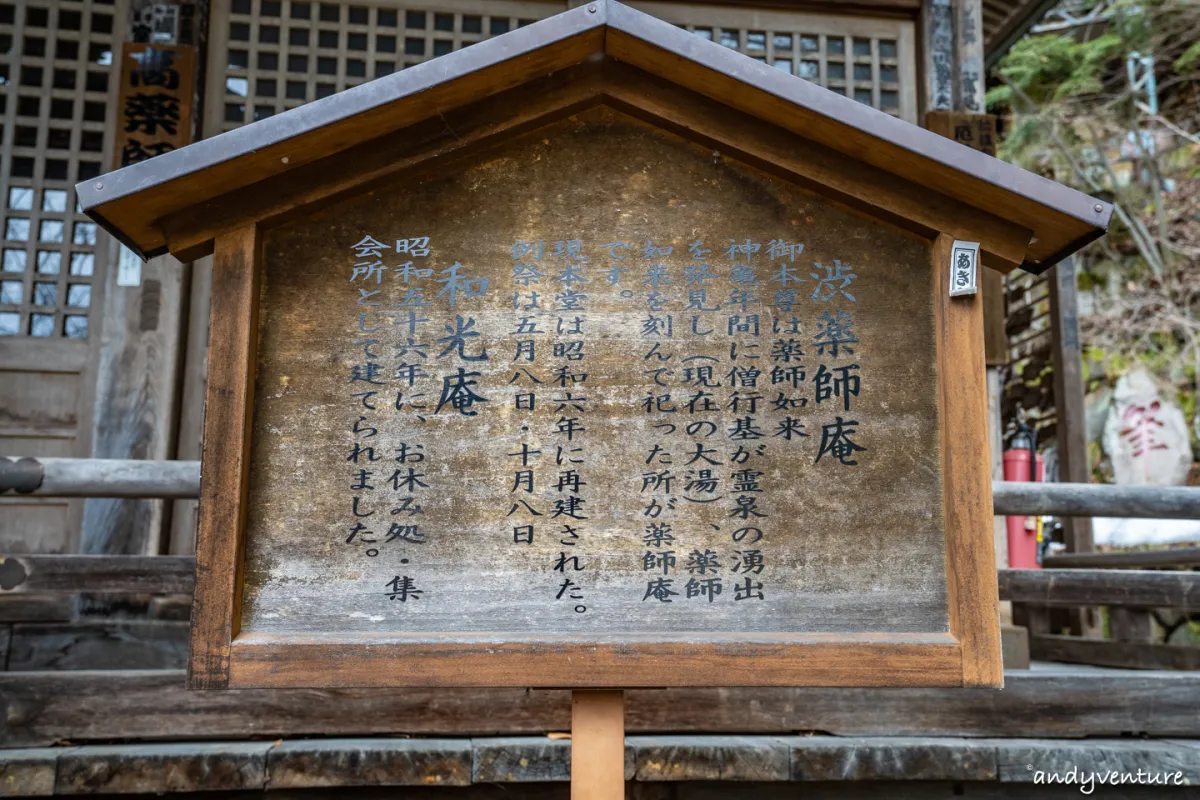 渋薬師庵
御本尊は薬師如来
神亀年間に僧行基が霊泉の湧出
を発見し（現在の大湯）、薬師
如来を刻んで祀った所が薬師庵
です。
現本堂は昭和六年に再建された。
例祭は五月八日・十月八日
和光庵
昭和五十六年に、お休み処・集
会所として建てられました。
あき
高薬師
厄
©andyventure